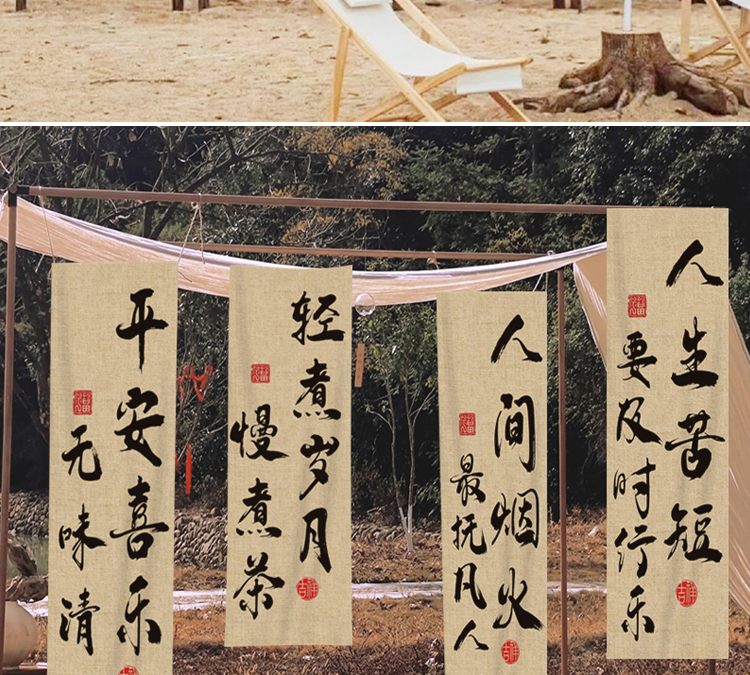 平安喜乐
无味清
轻煮岁月
慢煮茶
人间烟火
最抚凡人
人生苦短
要及时行乐